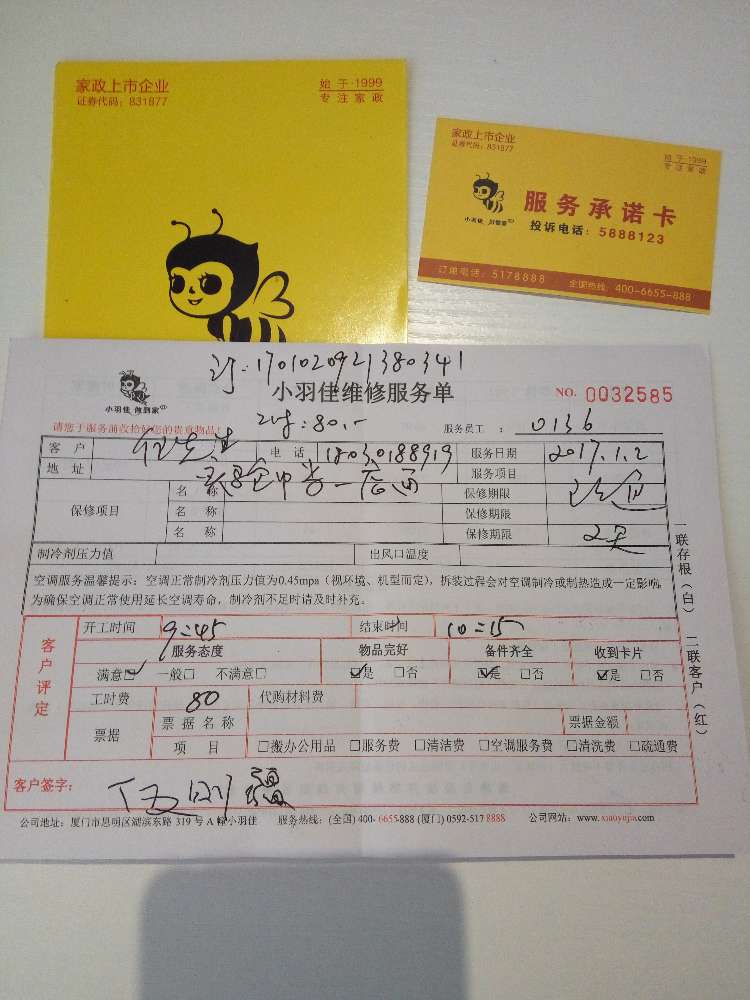 家政上市企业
证券代码：831877
始于·1999
专注家政
家政上市企业
证券代码：831877
始于·1999
专注家政
服务承诺卡
小羽佳 做到家
投诉电话：5888123
订单电话：5178888 全国热线：400-6655-888
订：1701020921380341
小羽佳 做到家
小羽佳维修服务单
NO. 0032585
请您于服务前收拾好您的贵重物品！
:80.-
服务员工 ： 0136
客户 任先生 电话 18030188919 服务日期 2017.1.2
地址 服务项目
保修项目 名称 保修期限
名称 保修期限
名称 保修期限 2天
制冷剂压力值 出风口温度
空调服务温馨提示：空调正常制冷剂压力值为0.45mpa（视环境、机型而定），拆装过程会对空调制冷或制热造成一定影响，
为确保空调正常使用延长空调寿命，制冷剂不足时请及时补充。
一联存根（白） 二联客户（红）
客户评定
开工时间 9:45 结束时间 10:15
服务态度 物品完好 备件齐全 收到卡片
满意☑ 一般□ 不满意□ ☑是 □否 ☑是 □否 ☑是 □否
工时费 80 代购材料费
票据 票据名称 票据金额
项目 □搬办公用品 □服务费 □清洁费 □空调服务费 □清洗费 □疏通费
客户签字：
公司地址：厦门市思明区湖滨东路 319 号 A 幢小羽佳 服务热线：(全国) 400- 6655-888 (厦门) 0592-517 8888 公司网站：www.xiaoyujia.com